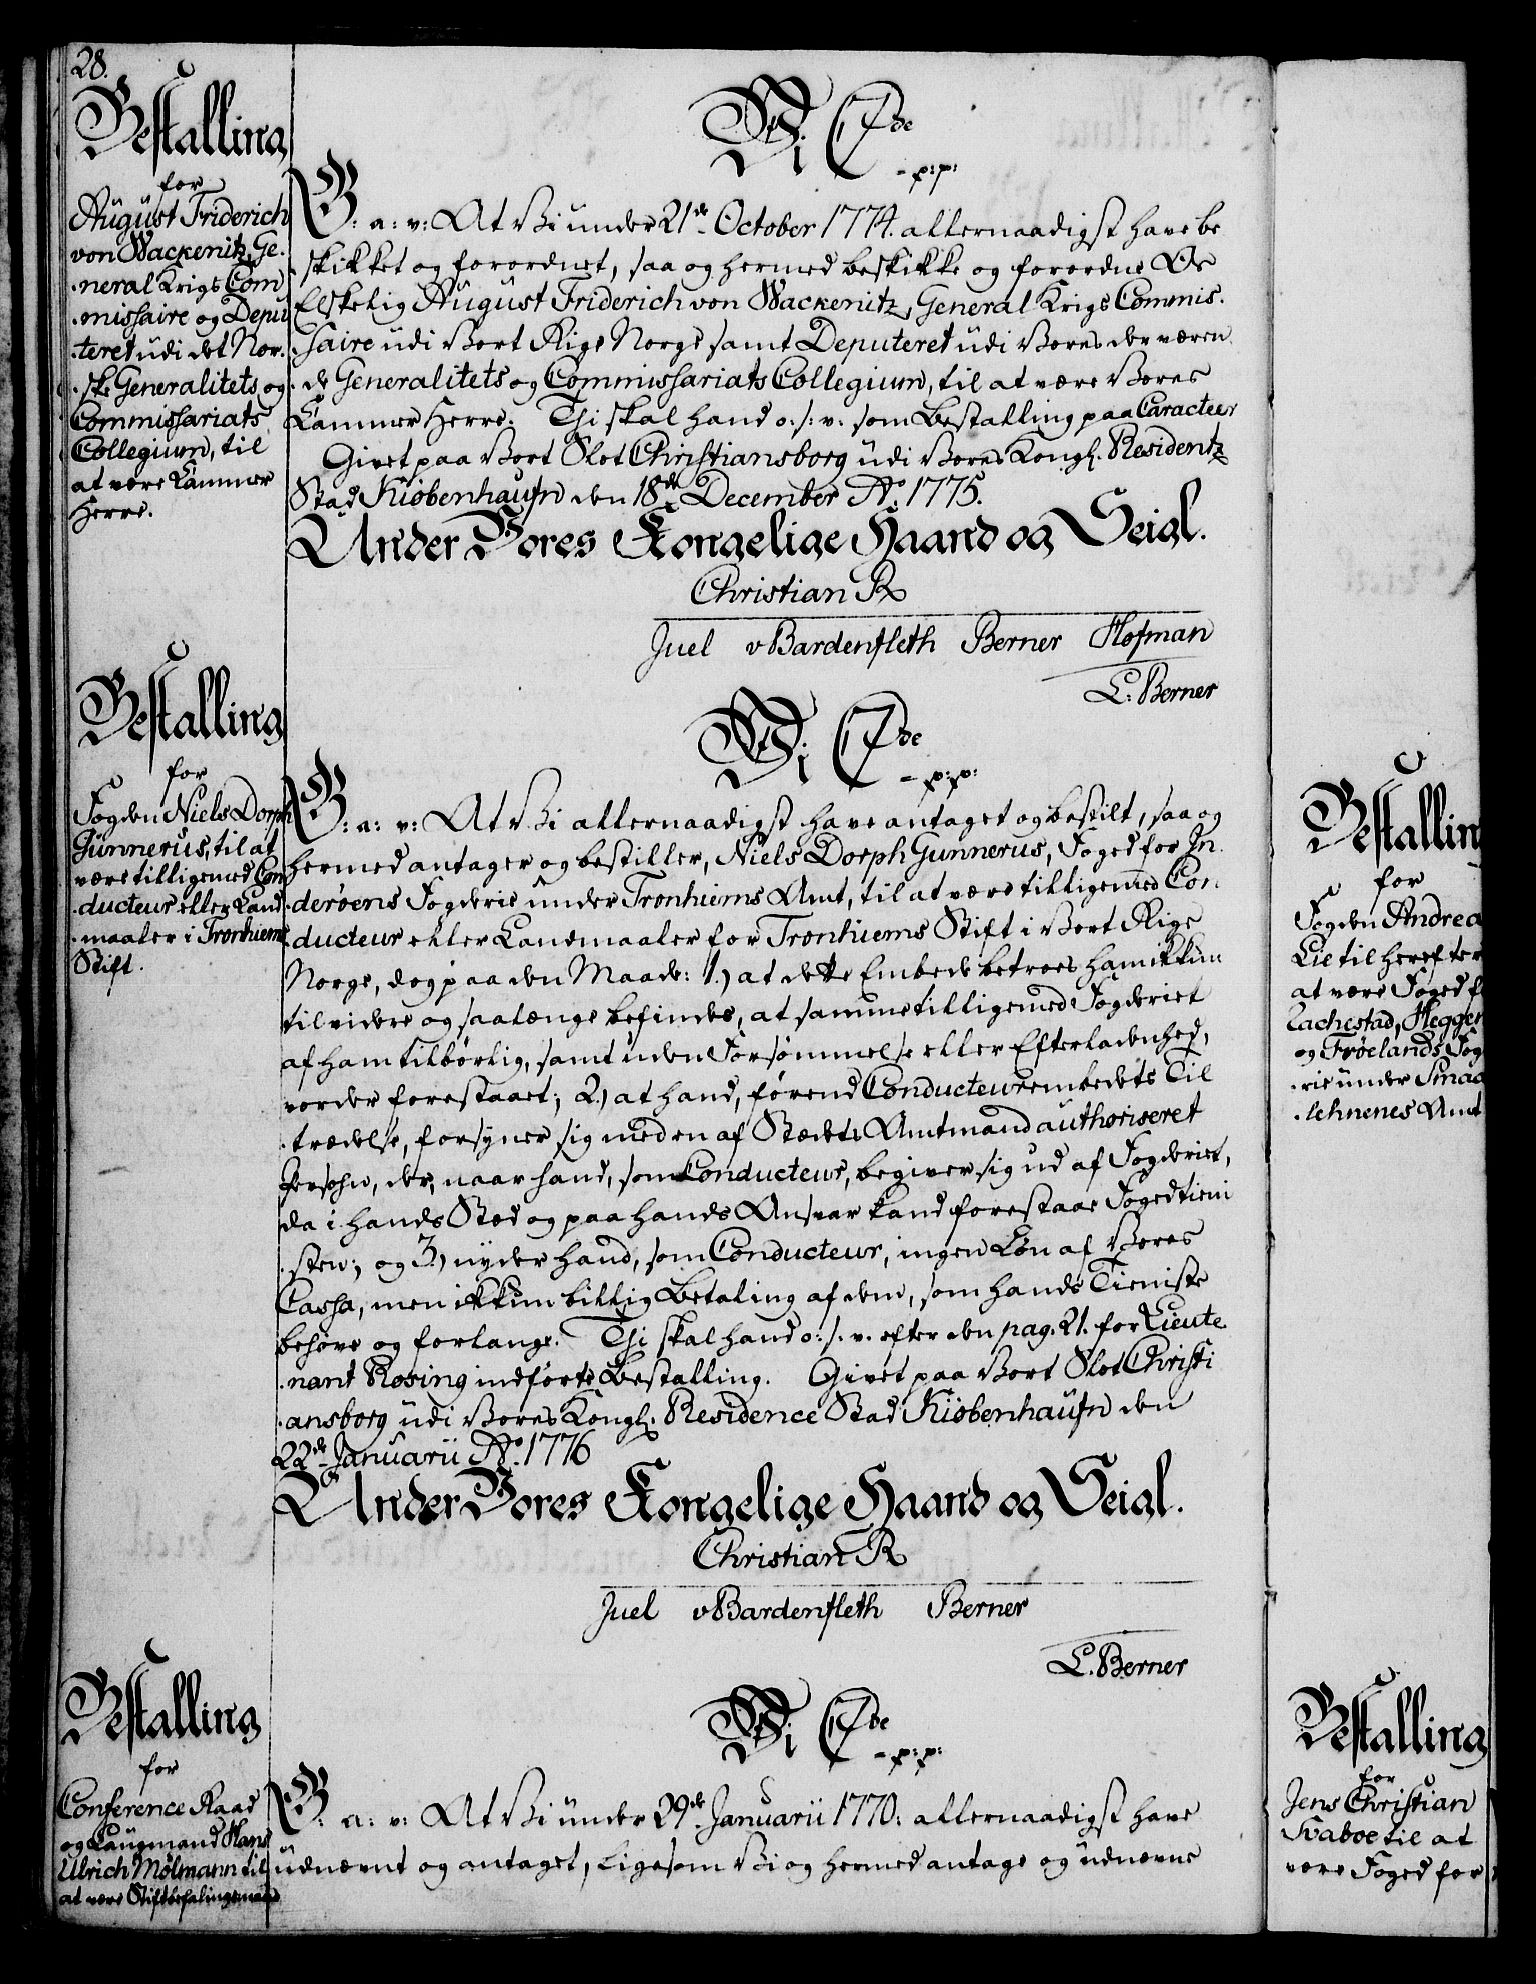 28.
Bestalling
for
August Friderich
von Wackenitz, Ge-
neral Krigs Com
missaire og Depu
teret udi det Nor-
ske Generalitets og
Commissariats
Collegium, til
at være Kammer
Herre.
Wi C 7de
- p: p:
G: a: v: At Vi under 21de October 1774. allernaadigst have be
skikket og forordnet, saa og hermed beskikke og forordne Os
Elskelig August Friderich von Wackenitz, General Krigs Commis-
saire udi Vort Rige Norge samt Deputeret udi Vores der væren
de Generalitets og Commissariats Collegium, til at være Vores
Kammer Herre. Thi skal hand o: s: v: som Bestalling paa Caracteer
Givet paa Vort Slot Christiansborg udi Vores Kongl. Residentz
Stad Kiøbenhaufn den 18de December Ao. 1775.
Under Vores Kongelige Haand og Seigl.
Christian R
Juel vBardenfleth Berner Hofman
L: Berner
Bestalling
for
Fogden Niels Dorph
Gunnerus, til at
være tilligemed Con
ducteur eller Land
maaler i Tronhiems
Stift.
Wi C 7de
- p: p:
G: a: v: At Vi allernaadigst have antaget og bestilt, saa og
hermed antager og bestiller, Niels Dorph Gunnerus, Foged for In-
derøens Fogderie under Tronhiems Amt, til at være tilligemed Con-
ducteur eller Landmaaler for Tronhiems Stift i Vort Rige
Norge, dog paa den Maade: 1.) at dette Embede betroes ham ikkun
til videre og saalænge befindes, at samme tilligemed Fogderiet
af ham tilbørlig, samt uden Forsømmelse eller Efterladenhed,
vorder forestaaet; 2.) at hand, førend Conducteurembedets Til
trædelse, forsyner sig med en af Stædets Amtmand authoriseret
Persohn, der, naar hand, som Conducteur, begiver sig ud af Fogderiet,
da i hands Sted og paa hands Ansvar kand forestaae Fogedtieni
sten; og 3.) nyder hand, som Conducteur, ingen Løn af Vores
Cassa, men ikkun billig Betaling af dem, som hands Tieniste
behøve og forlange. Thi skal hand o: s: v. efter den pag. 21. for Lieute
nant Rosing indførte Bestalling. Givet paa Vort Slot Christi
ansborg udi Vores Kongl. Residence Stad Kiøbenhaufn den
22de Januarii Ao. 1776
Under Vores Kongelige Haand og Seigl.
Christian R
Juel vBardenfleth Berner
L. Berner
Bestalling
for
Conference Raad
og Laugmand Hans
Ulrich Mølmann til
at være Stiftbefalingsmand
Wi C 7de
- p: p:
G: a: v: At Vi under 29de Januarii 1770. allernaadigst have
udnævnt og antaget, ligesom Vi og hermed antage og udnævne
Bestallin
for
Fogden Andrea
Lie til herefter
at være Foged f
Zachestad, Hegger
og Frøelands Fog
rie under Smaa
lehnenes Amt
Bestalling
for
Jens Christian
Svaboe til at
være Foged for